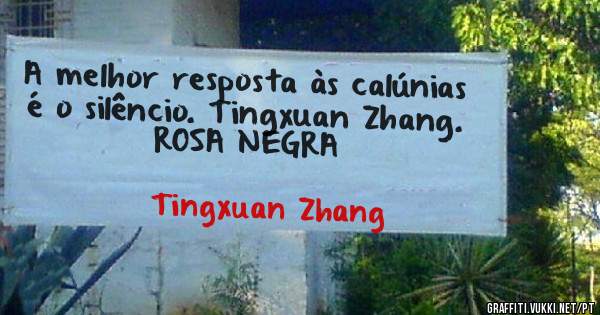 A melhor resposta às calúnias
é o silêncio. Tingxuan Zhang.
ROSA NEGRA
Tingxuan Zhang
GRAFFITI.VUKKI.NET/PT